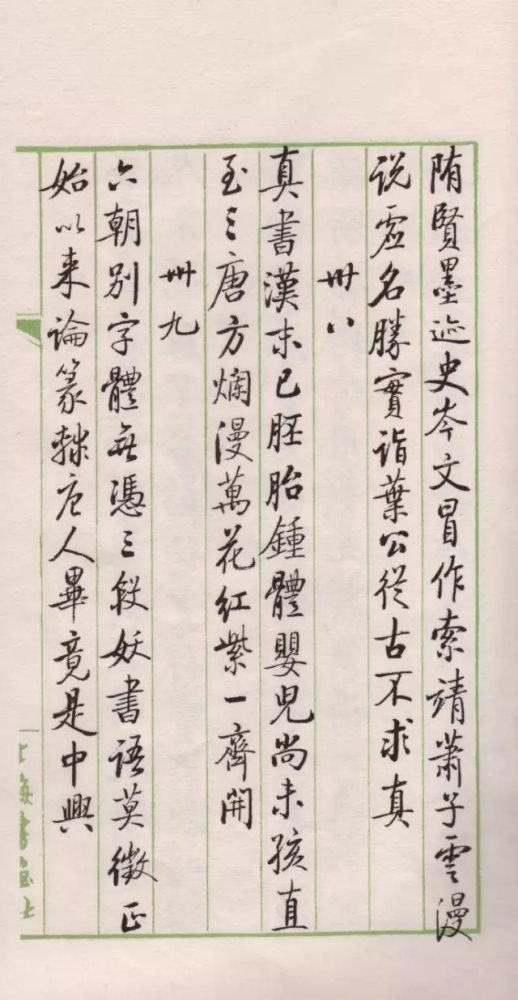 隋賢墨迹史岑文冒作索靖萧子雲漫
说虚名勝實詣葉公從古不求真
卌八
真書漢末已胚胎鍾體嬰兒尚未孩直
至三唐方爛漫萬花红紫一齊開
卌九
六朝别字體無憑三段妖書語莫徵正
始以来論篆隸唐人畢竟是中興
上海書畫社